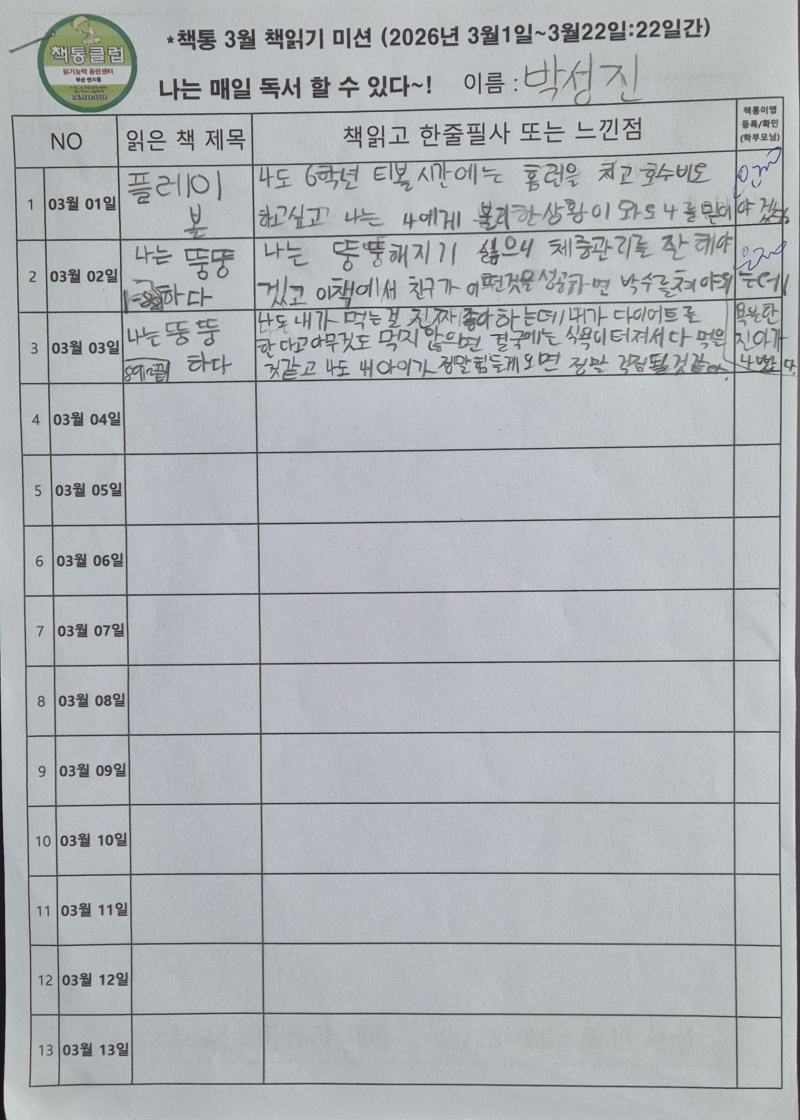 책통클럽
읽기능력 훈련센터
부산 연지점
*책통 3월 책읽기 미션 (2026년 3월1일~3월22일:22일간)
나는 매일 독서 할 수 있다~! 이름 : 박성진
NO 읽은 책 제목 책읽고 한줄필사 또는 느낀점 책통이앱 등록/확인 (학부모님)
1 03월 01일
플레이
볼
나도 6학년 티볼시간에는 홈런을 치고 호수비도
하고싶고 나는 나에게 불리한상황이 와도 나를 믿어야 겠
2 03월 02일
나는 뚱뚱
하다
나는 뚱뚱해지기 싫으니 체중관리를 잘 해야
겠고 이책에서 친구가 어떤것을성공하면 박수를쳐야
3 03월 03일
나는 뚱뚱
하다
나도 내가 먹는걸 진짜 좋아 하는데 내가 다이어트를
한다고 아무것도 먹지 않으면 결국에는 식욕이 터져서 다 먹은
것같고 나도 내아이가 정말힘들게오면 정말 걱정될것같
4 03월 04일
5 03월 05일
6 03월 06일
7 03월 07일
8 03월 08일
9 03월 09일
10 03월 10일
11 03월 11일
12 03월 12일
13 03월 13일